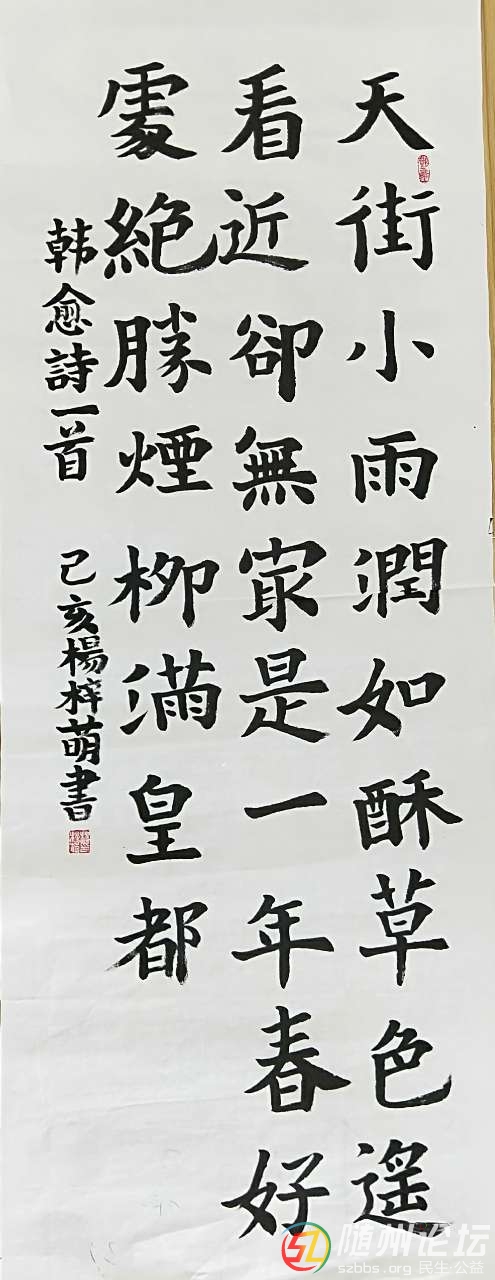 天街小雨潤如酥草色遥
看近卻無冣是一年春好
處絶勝煙柳滿皇都
韩愈詩一首 己亥楊梓萌書
随州论坛
szbbs.org 民生公益